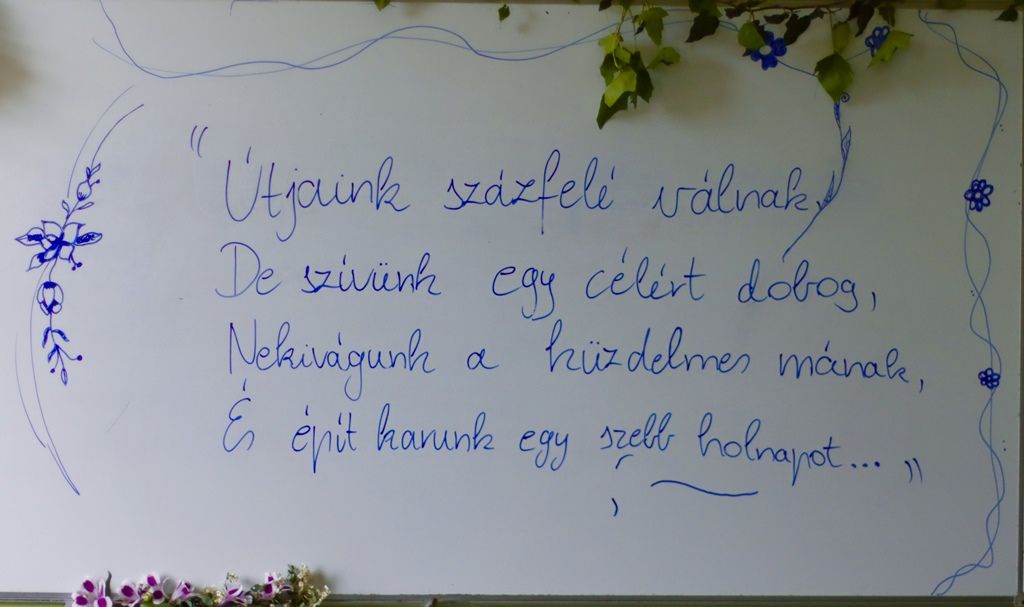 "Útjaink százfelé válnak,
De szívünk egy célért dobog,
Nekivágunk a küzdelmes mának,
És épít karunk egy szebb holnapot..."